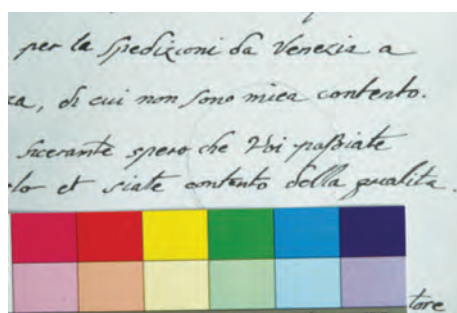 per la spedizioni da Venezia a
za, di cui non sono mica contento.
sicerante spero che Voi passiate
lo et siate contento della qualita
tore